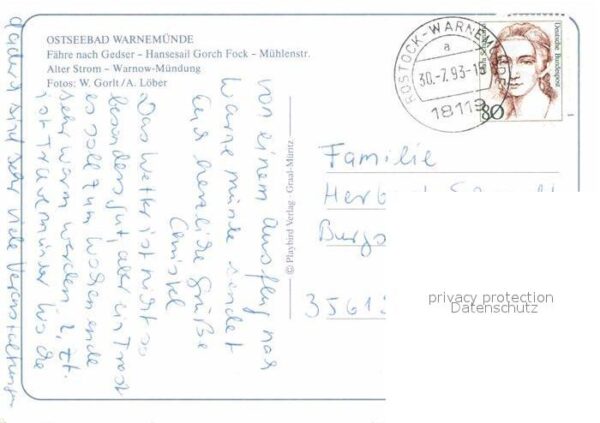 OSTSEEBAD WARNEMÜNDE
Fähre nach Gedser – Hansesail Gorch Fock – Mühlenstr.
Alter Strom – Warnow-Mündung
Fotos: W. Gorlt/A. Löber
von einem Ausflug nach
Warnemünde sendet
Euch herzliche Grüße
Das Wetter ist nicht so
besonders gut, aber in
es soll zum Wochenende
sehr warm werden. Z. Zt.
ist Travemünder Woche
dadurch sind sehr viele Veranstaltungen
© Playbird Verlag · Graal-Müritz
ROSTOCK-WARNEM
a
30.-7.93-
18119
Deutsche Bundespost
80
Familie
Her
Burgs
3561
privacy protection
Datenschutz